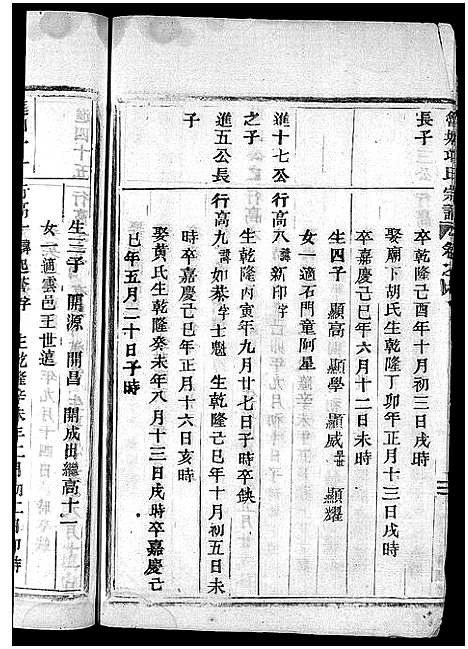 氏宗譜 卷之
長子三公 卒乾隆己酉年十月初三日戌時
娶廟下胡氏生乾隆丁卯年正月十三日戌時
卒嘉慶己巳年六月十二日未時
生四子 顯高 顯學 顯威 顯耀
女一適石門童阿星
進十七公 行高八諱新印字
之子 生乾隆丙寅年九月廿七日子時卒缺
進五公長 行高九諱如恭字士魁 生乾隆己巳年十月初五日未
子 時卒嘉慶己巳年正月十六日亥時
娶黃氏生乾隆癸未年八月十三日戌時卒嘉慶己
巳年五月二十日子時
生三子 開源 開昌 開成出繼高十一
女一適雲邑王世遠